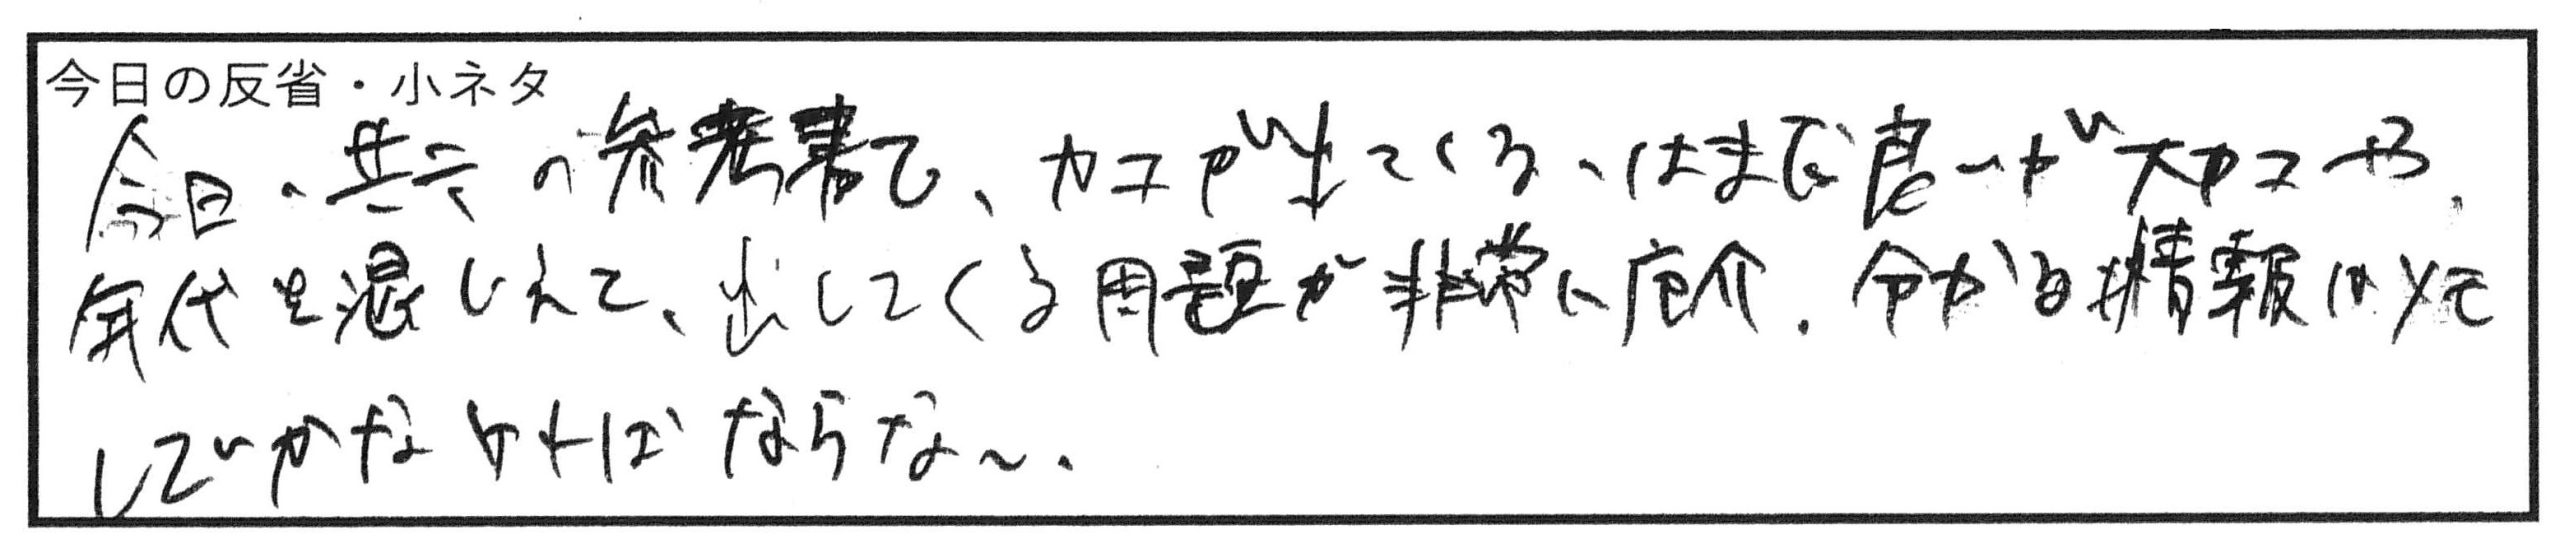 今日の反省・小ネタ
今日、共テの参考書で、カコが出てくるのはまだ良いが大カコや、
年代を混じえて、出してくる問題が非常に厄介。分かる情報はメモ
していかなければならない。